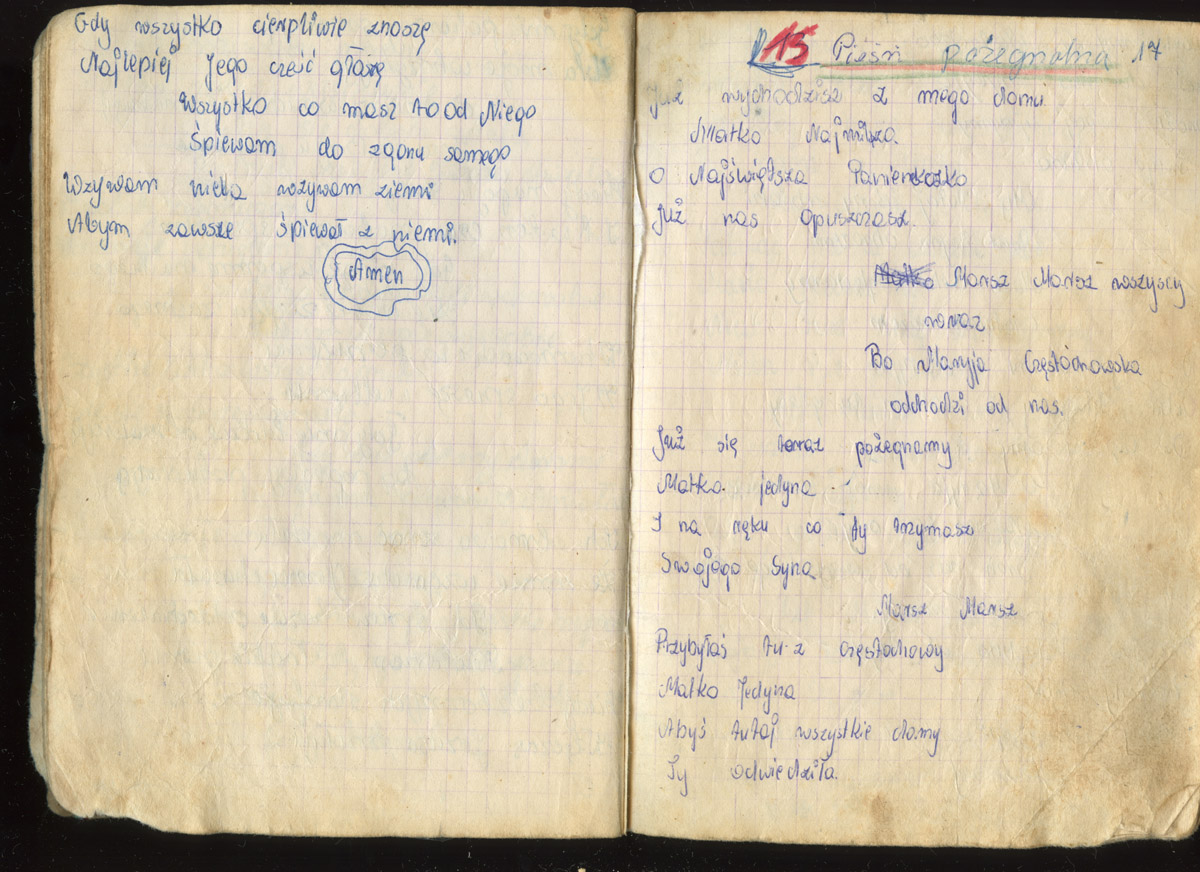 Gdy wszystko cierpliwie znoszę
Najlepiej Jego cześć głoszę
Wszystko co masz to od Niego
Śpiewam do zgonu samego
Wzywam nieba wzywam ziemi
Abym zawsze śpiewał z niemi.
Amen
15 Pieśń pożegnalna 17
Już wychodzisz z mego domu
Matko Najmilsza.
O Najświętsza Panieneczko
Już nas opuszczasz.
Matko Marsz Marsz wszyscy
wraz
Bo Maryja Częstochowska
odchodzi od nas.
Już się teraz pożegnamy
Matko jedyna
I na ręku co ty trzymasz
Swojego Syna
Marsz Marsz
Przybyłaś tu z Częstochowy
Matko Jedyna
Abyś tutaj wszystkie domy
Ty odwiedziła.